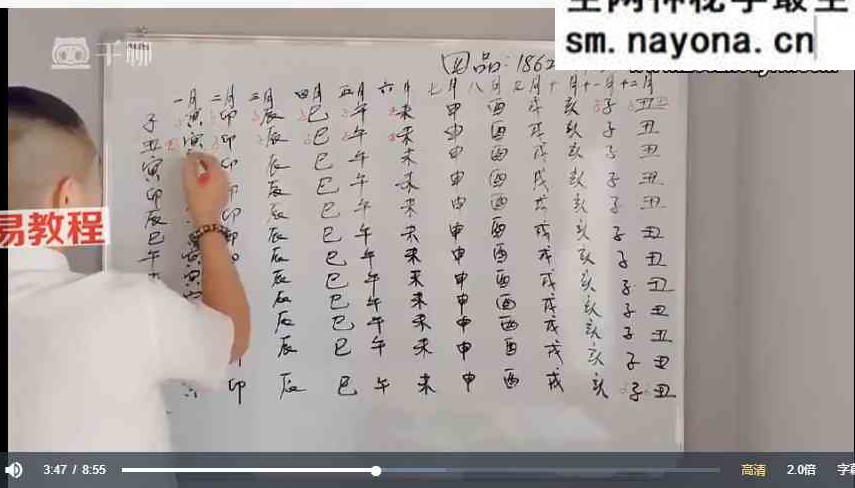 sm.nayona.cn
千聊
因品:1862
一月 二月 三月 四月 五月 六月 七月 八月 九月 十月 十一月 十二月
子 寅 卯 辰 巳 午 未 申 酉 戌 亥 子 丑
丑 寅 卯 辰 巳 午 未 申 酉 戌 亥 子 丑
寅 卯 辰 巳 午 未 申 酉 戌 亥 子 丑
卯 卯 辰 巳 午 未 申 酉 戌 亥 子 丑
辰 卯 辰 巳 午 未 申 酉 戌 亥 子 丑
易教程
巳 辰 巳 午 未 申 酉 戌 亥 子 丑
午 寅 辰 巳 午 未 申 酉 戌 亥 子 丑
寅 辰 巳 午 未 申 酉 戌 亥 子 丑
辰 巳 午 未 申 酉 戌 亥 子 丑
辰 巳 午 未 申 酉 戌 亥 子 丑
辰 巳 午 未 申 酉 戌 亥 子 丑
卯 辰 巳 午 未 申 酉 戌 亥 子 丑
3:47 / 8:55 高清 2.0倍